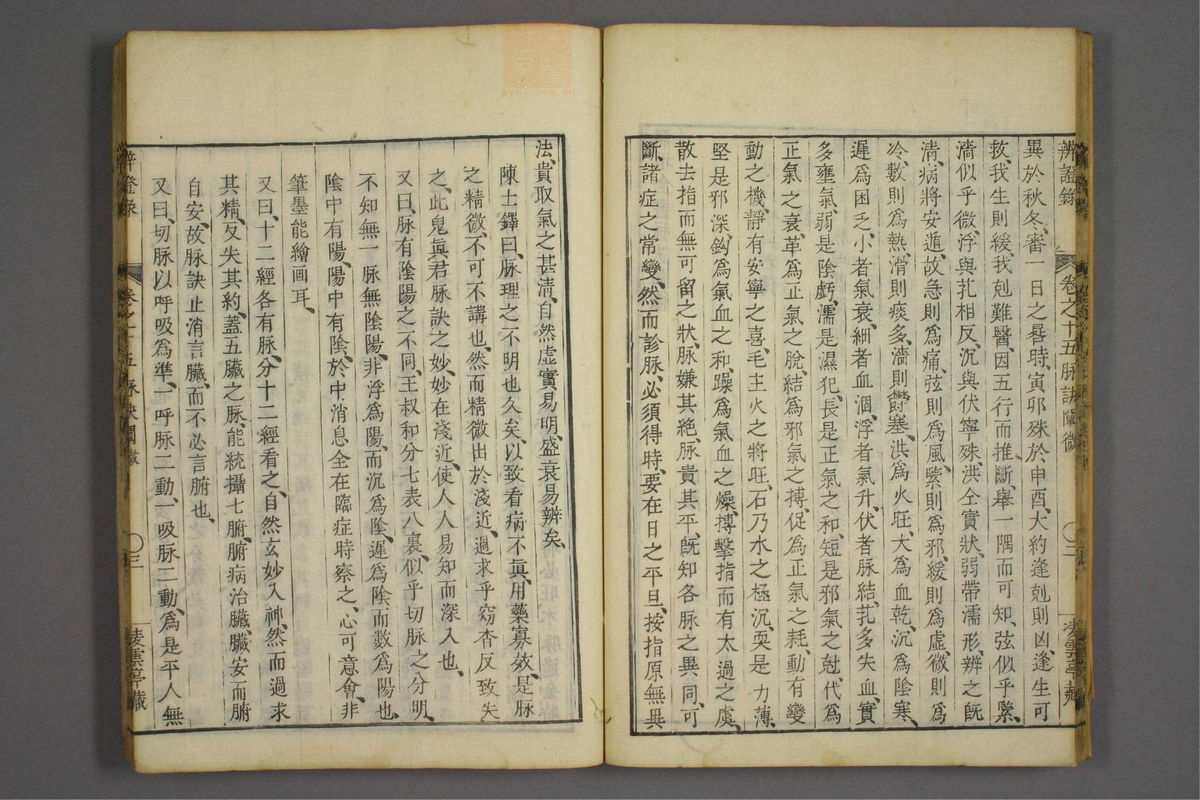 辨證錄 卷之十五脉訣闡微 〇二 凌雲亭藏
異於秋冬、審一日之晷時、寅卯殊於申酉、大約逢剋則凶、逢生可
救、我生則緩、我剋難醫、因五行而推斷、舉一隅而可知、弦似乎緊、
濇似乎微、浮與芤相反、沉與伏寧殊、洪全實狀、弱帶濡形、辨之旣
淸、病將安遁、故急則爲痛、弦則爲風、緊則爲邪、緩則爲虛、微則爲
冷、數則爲熱、滑則痰多、濇則欝塞、洪爲火旺、大爲血乾、沉爲陰寒、
遲爲困乏、小者氣衰、細者血涸、浮者氣升、伏者脉結、芤多失血、實
多壅氣、弱是陰虧、濡是濕犯、長是正氣之和、短是邪氣之尅、代爲
正氣之衰、革爲正氣之脫、結爲邪氣之搏、促爲正氣之耗、動有變
動之機、靜有安寧之喜、毛主火之將旺、石乃水之極沉、耎是力薄、
堅是邪深、鈎爲氣血之和、躁爲氣血之燥、搏擊指而有太過之虞、
散去指而無可留之狀、脉嫌其絶、脉貴其平、旣知各脉之異同、可
斷諸症之常變、然而診脉、必須得時、要在日之平旦、按指原無異
法、貴取氣之甚淸、自然虛實易明、盛衰易辨矣、
陳士鐸曰、脉理之不明也久矣、以致看病不眞、用藥寡效、是脉
之精微、不可不講也、然而精微出於淺近、過求乎窈杳、反致失
之、此鬼眞君脉訣之妙、妙在淺近、使人人易知而深入也、
又曰、脉有陰陽之不同、王叔和分七表八裏、似乎切脉之分明、
不知無一脉無陰陽、非浮爲陽、而沉爲陰、遲爲陰而數爲陽也、
陰中有陽、陽中有陰、於中消息、全在臨症時察之、心可意會、非
筆墨能繪画耳、
又曰、十二經各有脉、分十二經看之、自然玄妙入神、然而過求
其精、反失其約、蓋五臟之脉、能統攝七腑、腑病治臟、臟安而腑
自安、故脉訣止消言臟、而不必言腑也、
又曰、切脉以呼吸爲準、一呼脉二動、一吸脉二動、爲是平人、無
辨證錄 卷之十五 脉訣闡微 〇三 凌雲亭藏